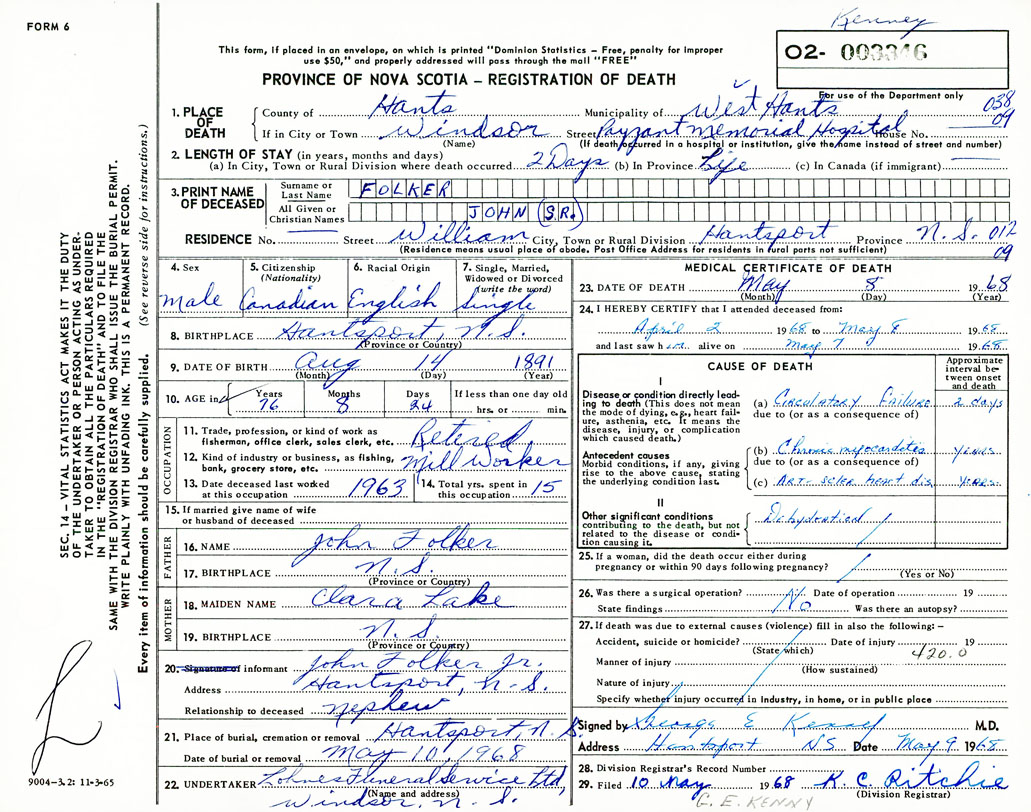 FORM 6
Kenney
This form, if placed in an envelope, on which is printed "Dominion Statistics – Free, penalty for improper
use $50," and properly addressed will pass through the mail "FREE"
O2- 003346
PROVINCE OF NOVA SCOTIA – REGISTRATION OF DEATH
For use of the Department only
038
09
1. PLACE OF DEATH County of Hants Municipality of West Hants
If in City or Town Windsor Street Payzant Memorial Hospital House No.
(Name) (If death occurred in a hospital or institution, give the name instead of street and number)
2. LENGTH OF STAY (in years, months and days)
(a) In City, Town or Rural Division where death occurred 2 Days (b) In Province Life (c) In Canada (if immigrant)
3. PRINT NAME OF DECEASED Surname or Last Name FOLKER
All Given or Christian Names JOHN (SR.)
RESIDENCE No. Street William City, Town or Rural Division Hantsport Province N.S. 012
(Residence means usual place of abode. Post Office Address for residents in rural parts not sufficient) 09
4. Sex 5. Citizenship (Nationality) 6. Racial Origin 7. Single, Married, Widowed or Divorced (write the word)
Male Canadian English Single
8. BIRTHPLACE Hantsport, N.S.
(Province or Country)
9. DATE OF BIRTH Aug 14 1891
(Month) (Day) (Year)
10. AGE in Years Months Days If less than one day old
76 8 24 hrs. or min.
OCCUPATION
11. Trade, profession, or kind of work as fisherman, office clerk, sales clerk, etc. Retired
12. Kind of industry or business, as fishing, bank, grocery store, etc. Mill Worker
13. Date deceased last worked at this occupation 1963 14. Total yrs. spent in this occupation 15
15. If married give name of wife or husband of deceased
FATHER
16. NAME John Folker
17. BIRTHPLACE N.S.
(Province or Country)
MOTHER
18. MAIDEN NAME Clara Lake
19. BIRTHPLACE N.S.
(Province or Country)
20. Signature of informant John Folker Jr.
Address Hantsport, N.S.
Relationship to deceased Nephew
21. Place of burial, cremation or removal Hantsport N.S.
Date of burial or removal May 10, 1968
22. UNDERTAKER Lohnes Funeral Service Ltd,
(Name and address)
Windsor, N.S.
MEDICAL CERTIFICATE OF DEATH
23. DATE OF DEATH May 8 1968
(Month) (Day) (Year)
24. I HEREBY CERTIFY that I attended deceased from:
April 2 1968 to May 8 1968
and last saw him alive on May 7 1968
CAUSE OF DEATH Approximate interval between onset and death
I
Disease or condition directly leading to death (This does not mean the mode of dying, e.g., heart failure, asthenia, etc. It means the disease, injury, or complication which caused death.)
(a) Circulatory Failure 2 days
due to (or as a consequence of)
Antecedent causes
Morbid conditions, if any, giving rise to the above cause, stating the underlying condition last.
(b) Chronic myocarditis years
due to (or as a consequence of)
(c) Art- scler heart dis years
II
Other significant conditions contributing to the death, but not related to the disease or condition causing it.
25. If a woman, did the death occur either during pregnancy or within 90 days following pregnancy?
(Yes or No)
26. Was there a surgical operation? No Date of operation 19
State findings Was there an autopsy?
27. If death was due to external causes (violence) fill in also the following: –
Accident, suicide or homicide? Date of injury 19
(State which) 420.0
Manner of injury
(How sustained)
Nature of injury
Specify whether injury occurred in industry, in home, or in public place
Signed by George E Kenny M.D.
Address Hantsport NS Date May 9 1968
28. Division Registrar's Record Number
29. Filed 10 May 1968 K. C. Ritchie
(Division Registrar)
G. E. KENNY
SEC. 14 – VITAL STATISTICS ACT MAKES IT THE DUTY
OF THE UNDERTAKER OR PERSON ACTING AS UNDER-
TAKER TO OBTAIN ALL THE PARTICULARS REQUIRED
IN THE "REGISTRATION OF DEATH" AND TO FILE THE
SAME WITH THE DIVISION REGISTRAR WHO SHALL ISSUE THE BURIAL PERMIT.
WRITE PLAINLY WITH UNFADING INK. THIS IS A PERMANENT RECORD.
Every item of information should be carefully supplied. (See reverse side for instructions.)
9004-3.2: 11-3-65